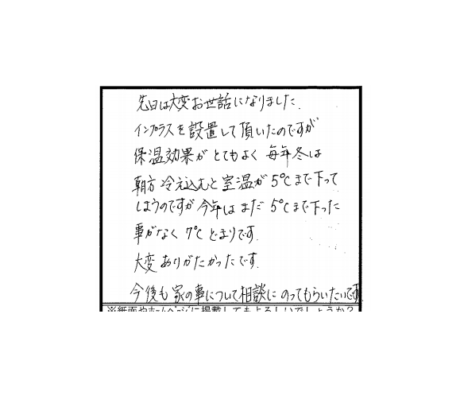 先日は大変お世話になりました.
インプラスを設置して頂いたのですが
保温効果がとてもよく 毎年冬は
朝方冷え込むと室温が5℃まで下って
しまうのですが今年はまだ5℃まで下った
事がなく7℃どまりです.
大変ありがたかったです.
今後も家の事について相談にのってもらいたいです
※紙面やホームページに掲載してもよろしいでしょうか?